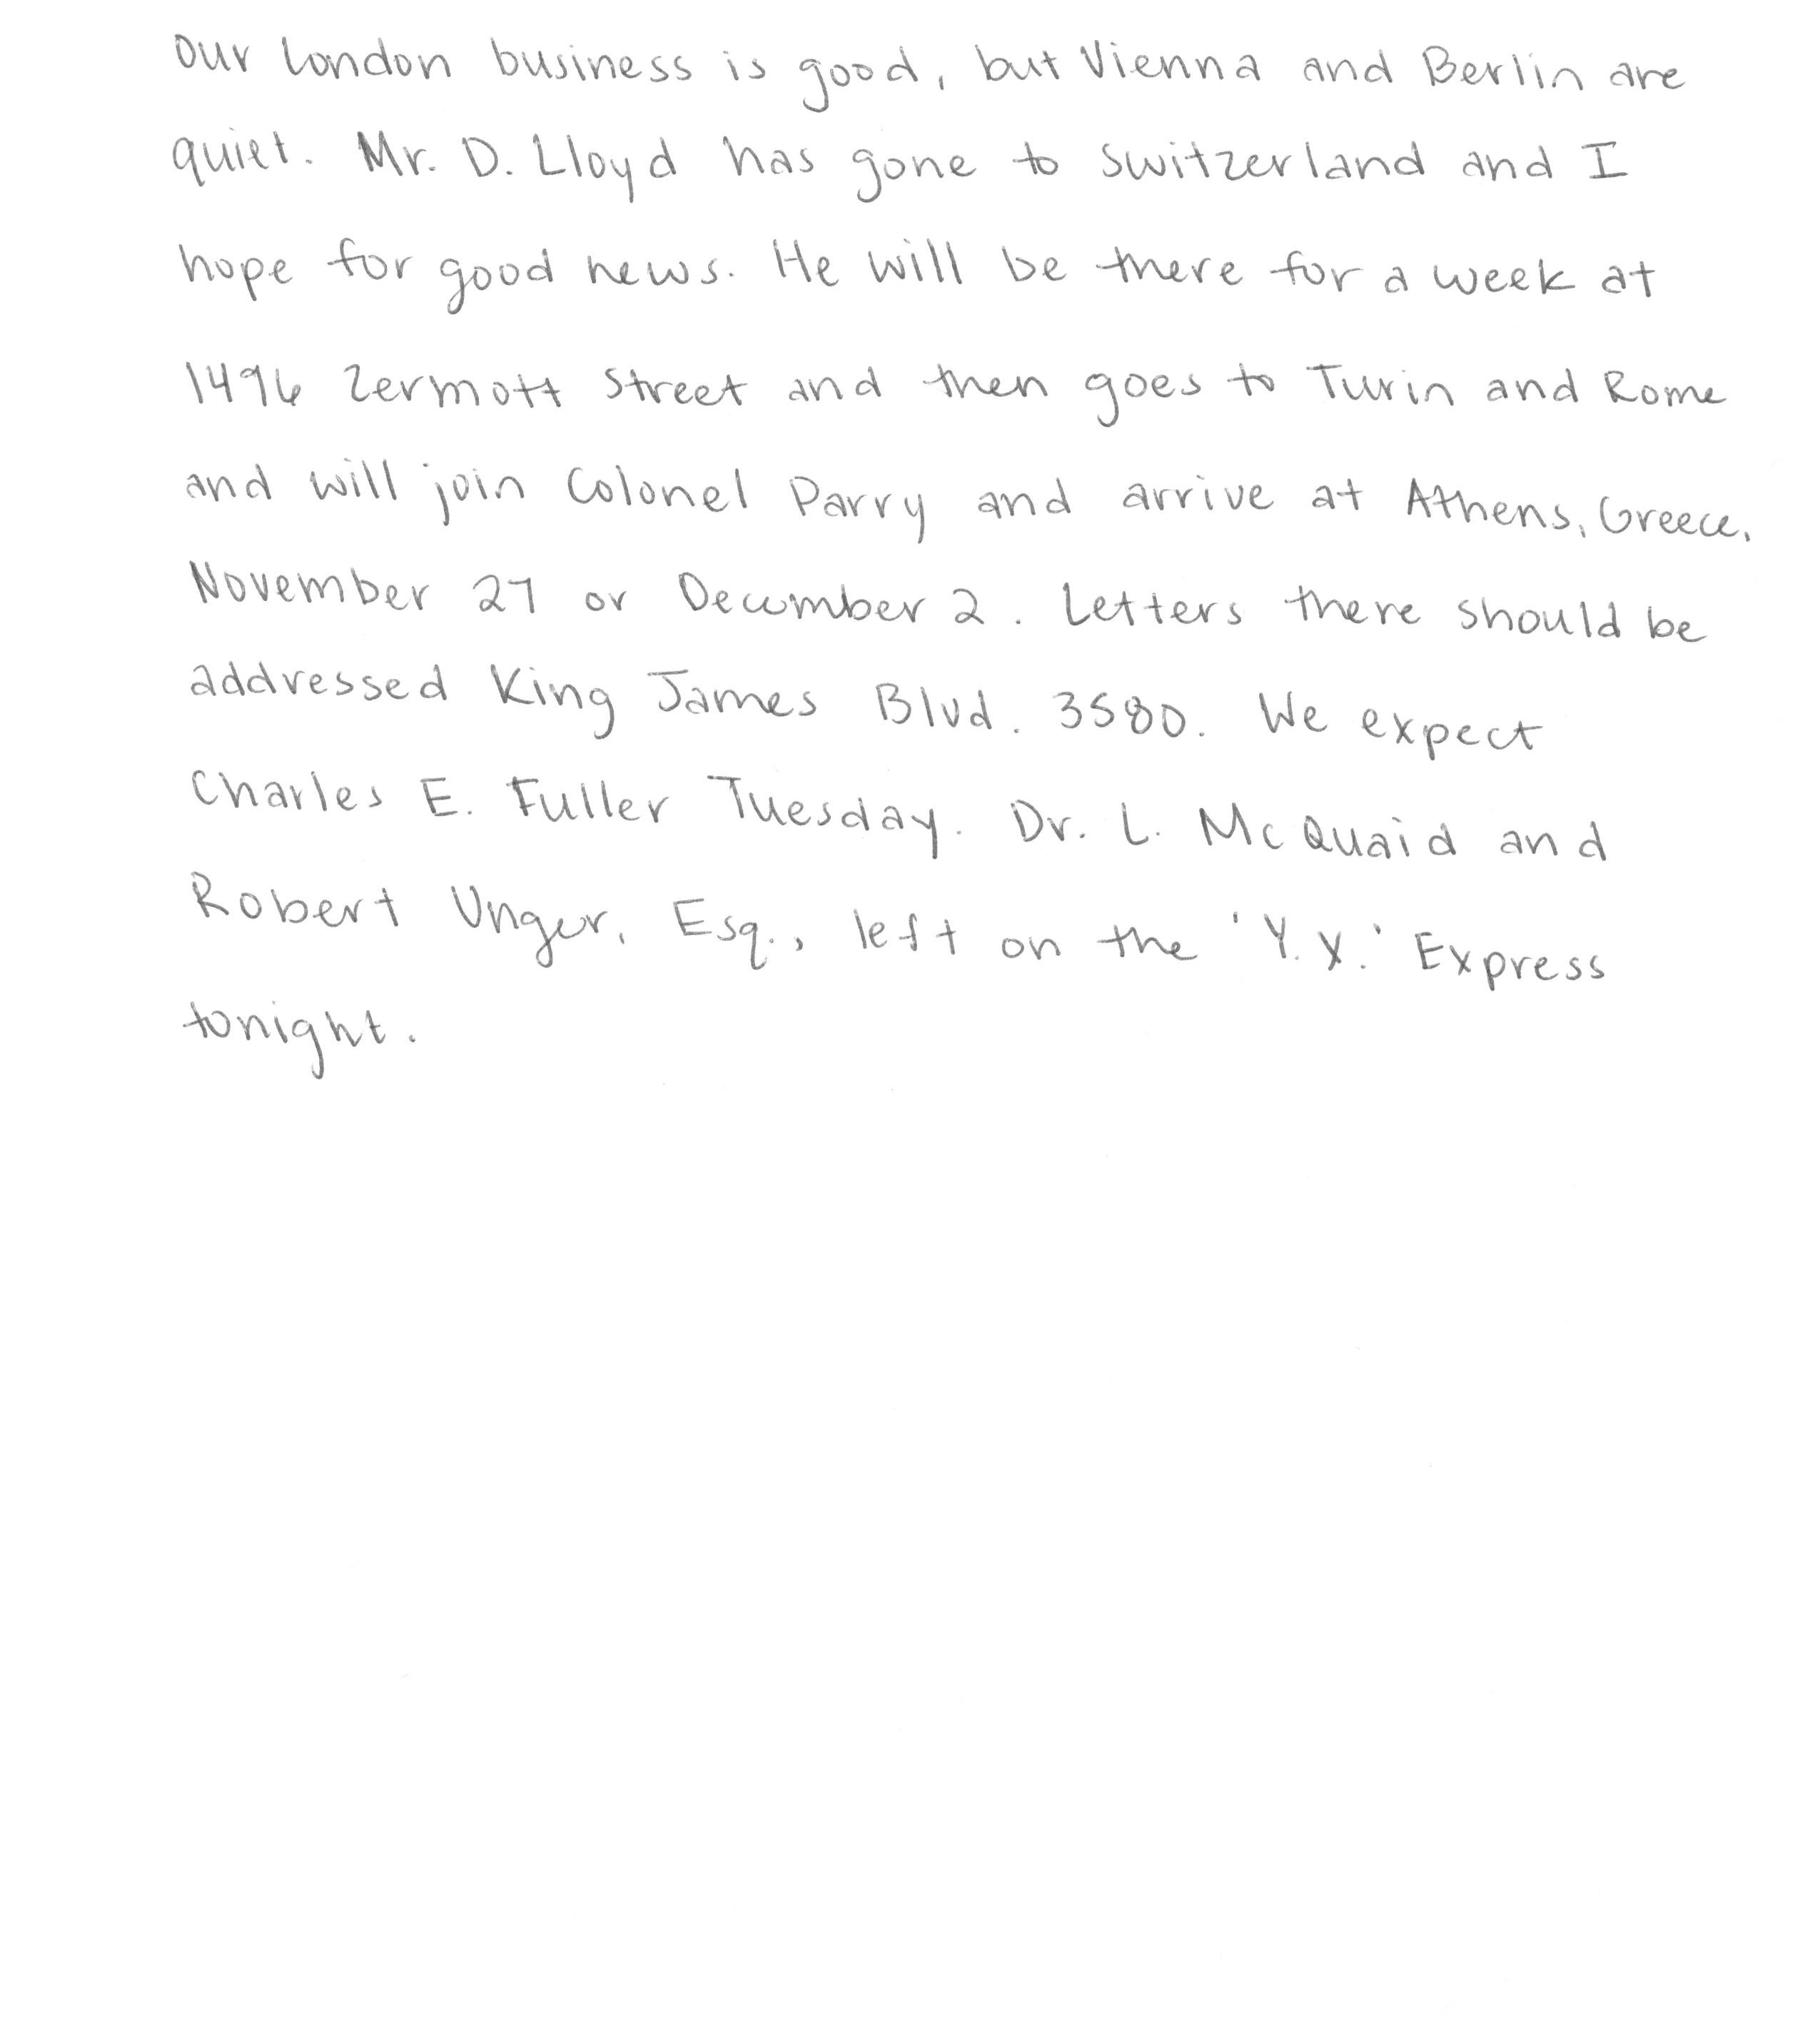 Our London business is good, but Vienna and Berlin are
quiet. Mr. D. Lloyd has gone to Switzerland and I
hope for good news. He will be there for a week at
1496 Zermott Street and then goes to Turin and Rome
and will join Colonel Parry and arrive at Athens, Greece,
November 27 or December 2. Letters there should be
addressed King James Blvd. 3580. We expect
Charles E. Fuller Tuesday. Dr. L. McQuaid and
Robert Unger, Esq., left on the 'Y.X.' Express
tonight.